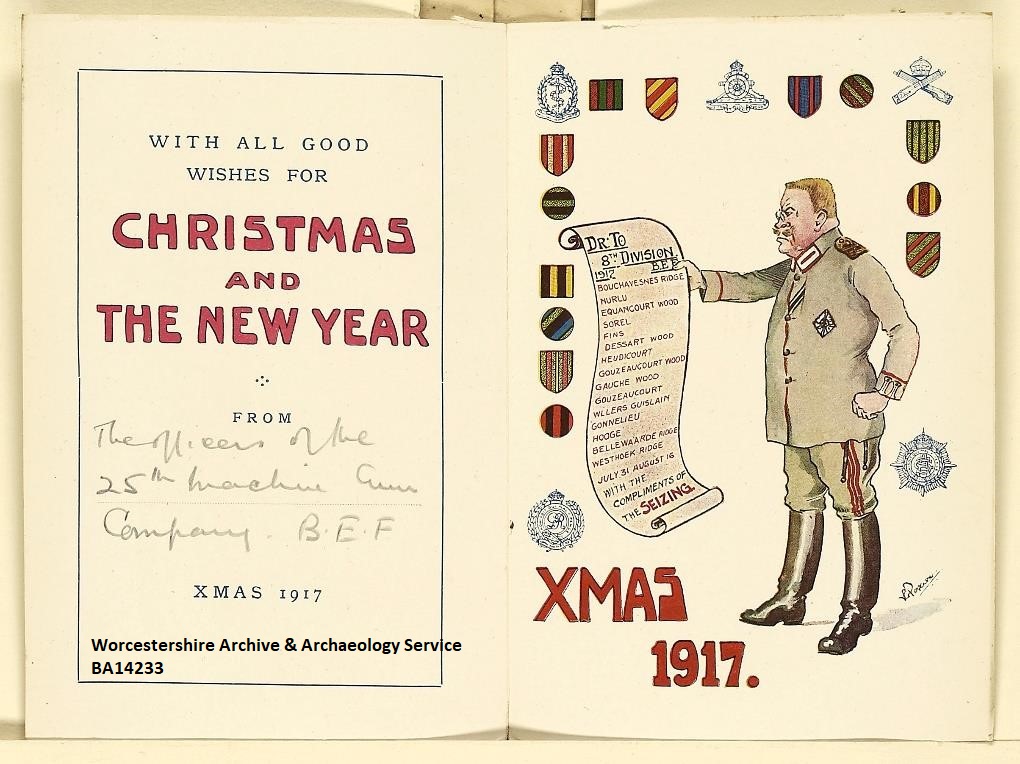 WITH ALL GOOD
WISHES FOR
CHRISTMAS
AND
THE NEW YEAR
FROM
The officers of the
25th Machine Gun
Company. B.E.F
XMAS 1917
Worcestershire Archive & Archaeology Service
BA14233
DR. TO
8TH DIVISION
1917 B.E.F
BOUCHAVESNES RIDGE
NURLU
EQUANCOURT WOOD
SOREL
FINS
DESSART WOOD
HEUDICOURT
GOUZEAUCOURT WOOD
GAUCHE WOOD
GOUZEAUCOURT
VILLERS GUISLAIN
GONNELIEU
HOOGE
BELLEWAARDE RIDGE
WESTHOEK RIDGE
JULY 31 AUGUST 16
WITH THE
COMPLIMENTS OF
THE SEIZING.
XMAS
1917.